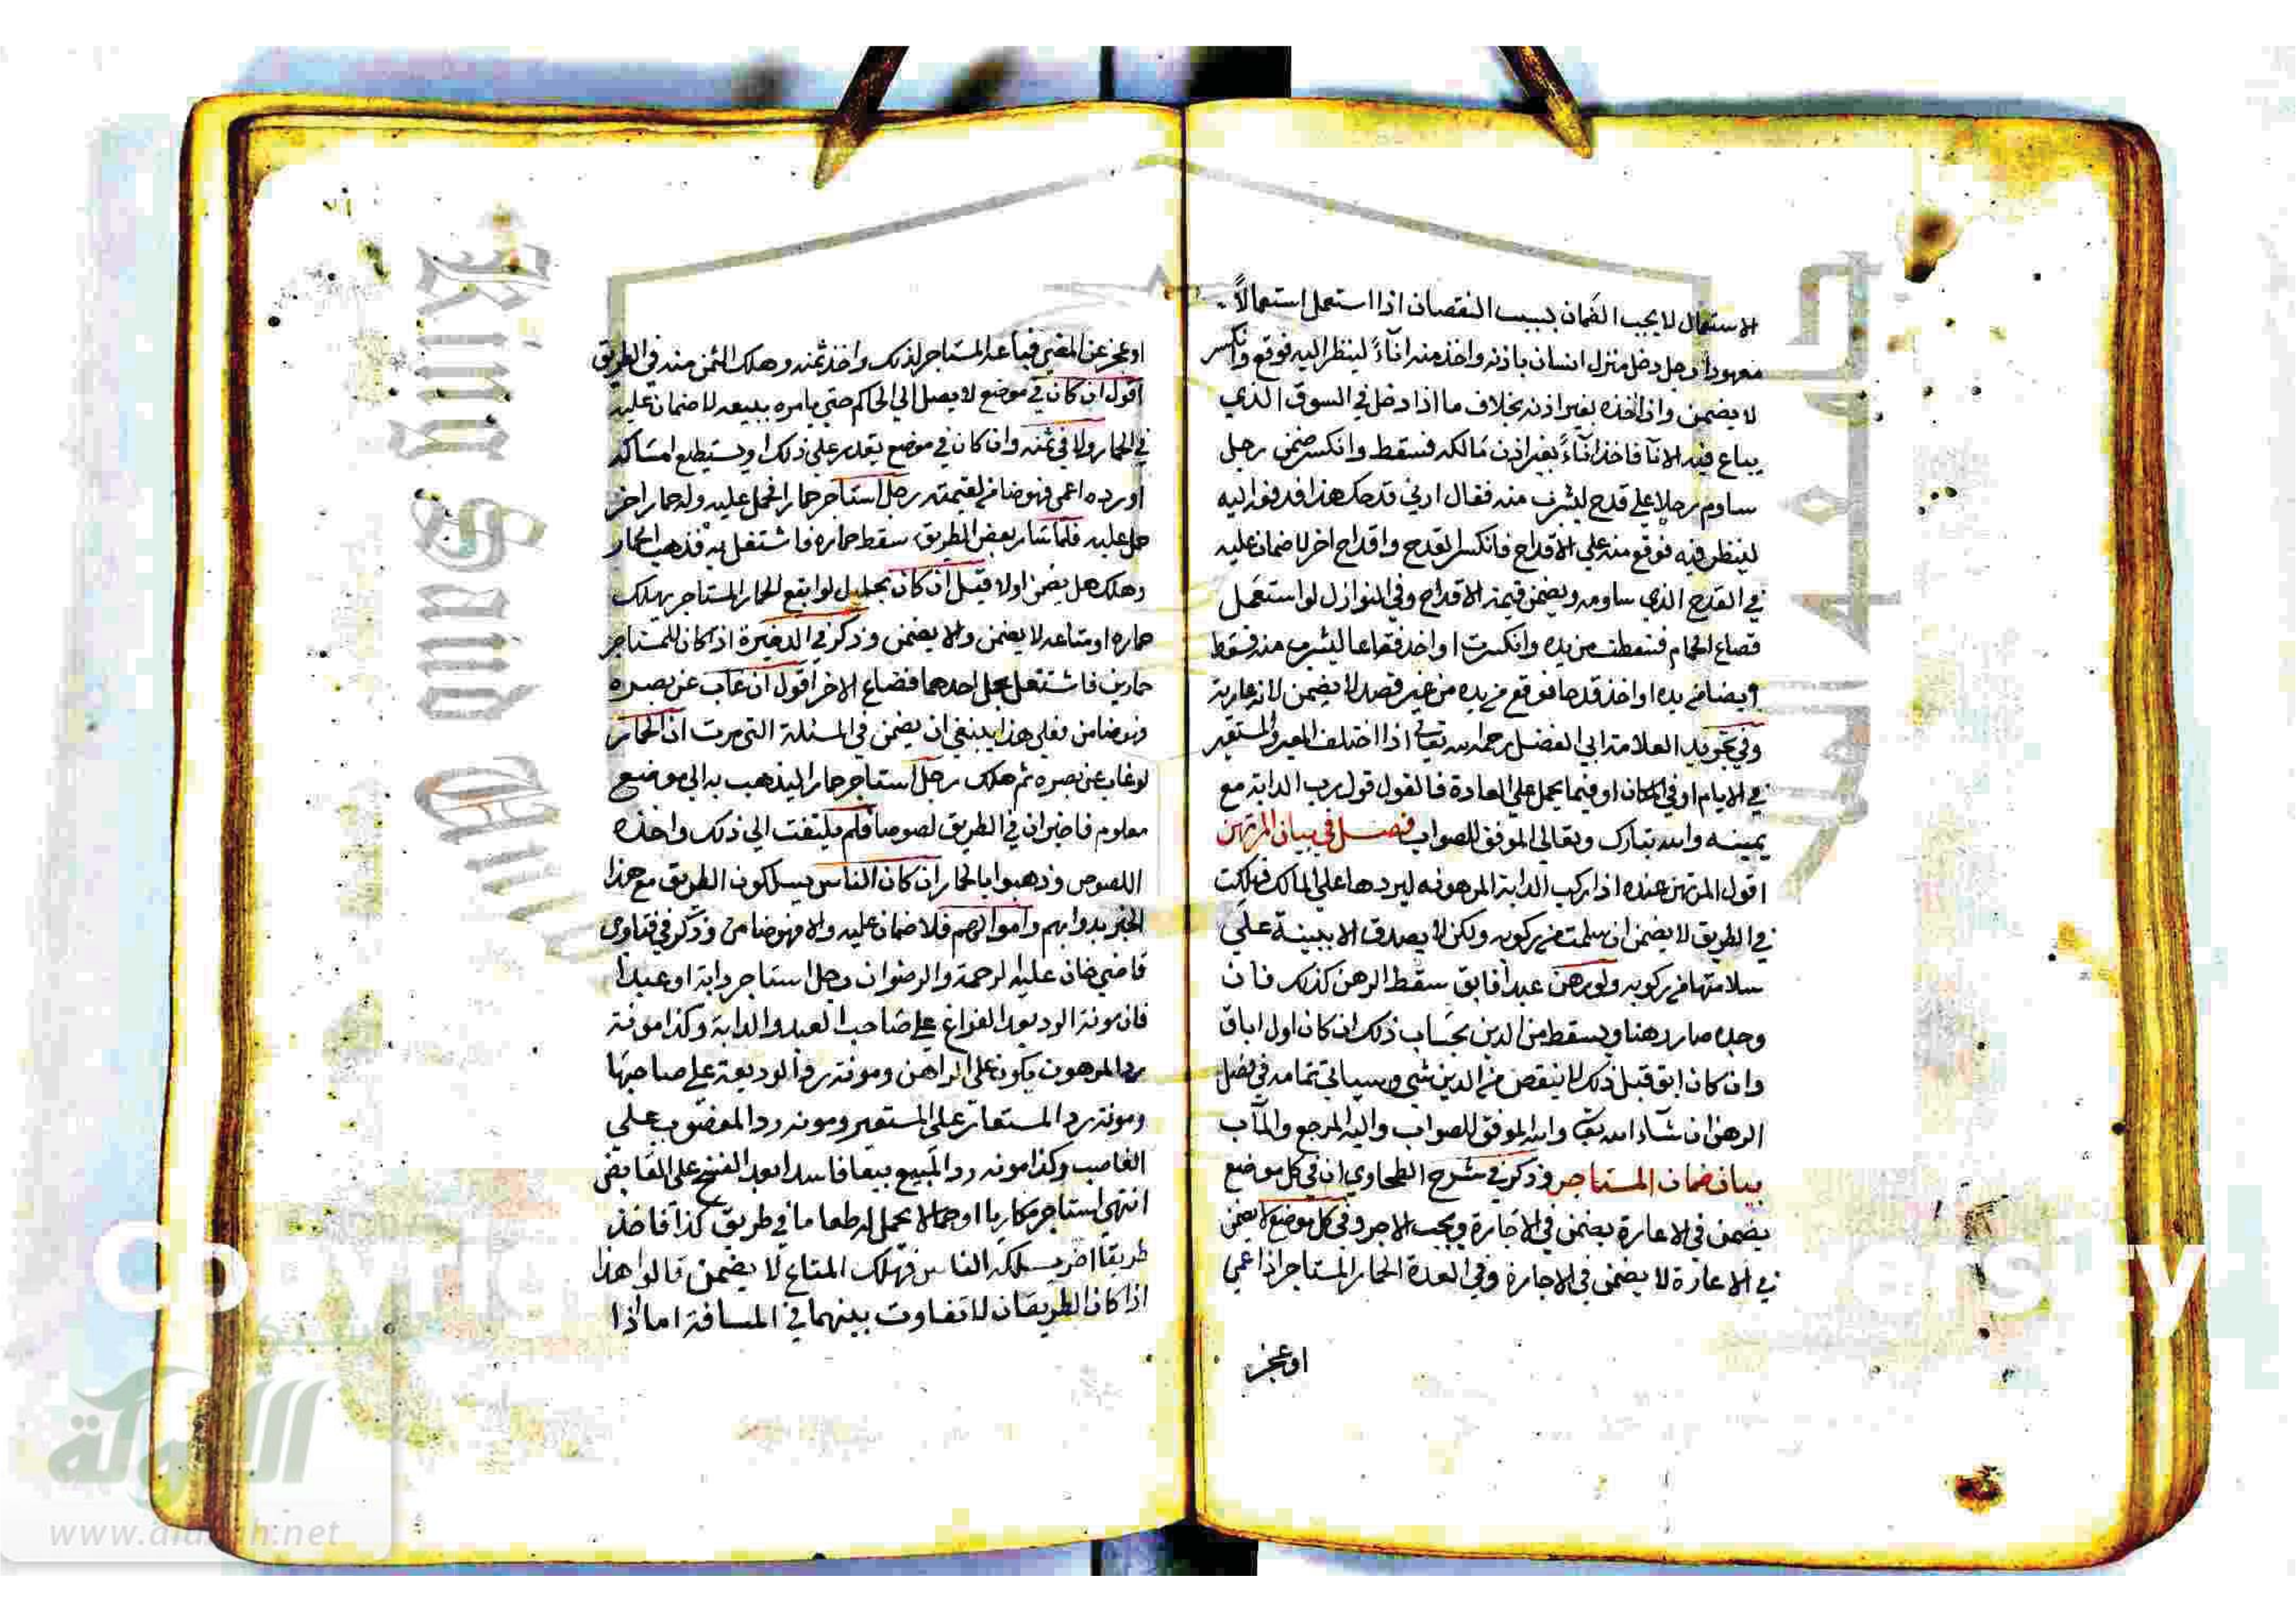 الاستعمال لا يجب الضمان بسبب النقصان اذا استعمل استعمالاً
معهودا رجل دخل منزل انسان باذنه واخذ منه اناءً لينظر اليه فوقع وانكسر
لا يضمن وان اخذه بغير اذنه بخلاف ما اذا دخل في السوق الذي
يباع فيه الانآ فاخذ انآءً بغير اذن مالكه فسقط وانكسر ضمن رجل
ساوم رجلا على قدح ليشرب منه فقال ادني قدحك هذا فدفعه اليه
لينظر فيه فوقع منه على الاقداح فانكسر القدح واقداح اخر لا ضمان عليه
في القدح الذي ساومه ويضمن قيمة الاقداح وفي النوازل لو استعمل
قصاع الحمام فسقطت من يده وانكسرت او اخذ فقاعا ليشرب منه فسقط
ايضا من يده او اخذ قدحا فوقع من يده من غير قصد لا يضمن لانه عارية
وفي تجريد العلامة ابي الفضل رحمه الله تعالى اذا اختلف المعير والمستعير
في الايام او في المكان او فيما يحمل على العادة فالقول قول رب الدابة مع
يمينه والله تبارك وتعالى الموفق للصواب فصل في بيان المرتهن
اقول المرتهن عنده اذا ركب الدابة المرهونه ليردها على المالك فهلكت
في الطريق لا يضمن ان سلمت من ركوبه ولكن لا يصدق الا ببينة على
سلامتها من ركوبه ولو رهن عبدا فابق سقط الرهن كذلك فان
وجده صار رهنا ويسقط من الدين بحساب ذلك ان كان اول اباق
وان كان ابق قبل ذلك لا ينقص من الدين شي وسياتي تمامه في فصل
الرهن ان شآء الله تعا والله الموفق للصواب واليه المرجع والمآب
بيان ضمان المستاجر وذكر في شرح الطحاوي ان في كل موضع
يضمن في الاعارة يضمن في الاجارة ويجب الاجر وفي كل موضع لا يضمن
في الاعارة لا يضمن في الاجارة وفي العدة الحمار المستاجر اذا عمي
اوعجز
اوعجز عن المضي فباعه المستاجر لذلك واخذ ثمنه وهلك الثمن منه في الطريق
اقول ان كان في موضع لا يصل الى الحاكم حتى يامره ببيعه لا ضمان عليه
في الحمار ولا في ثمنه وان كان في موضع يقدر على ذلك او يستطيع امساكه
او رده اعمى فهو ضامن لقيمته رجل استاجر حمارا فحمل عليه وله حمار اخر
حمل عليه فلما سار بعض الطريق سقط حماره فاشتغل به فذهب الحمار
وهلك هل يضمن اولا قيل ان كان بحال لو اتبع الحمار المستاجر يهلك
حماره او متاعه لا يضمن والا يضمن وذكر في الذخيرة اذا كان للمستاجر
حمارين فاشتغل بحمل احدهما فضاع الاخر اقول ان غاب عن بصره
فهو ضامن فعلى هذا ينبغي ان يضمن في المسئلة التي مرت ان الحمار
لو غاب عن بصره ثم هلك رجل استاجر حمارا ليذهب به الى موضع
معلوم فاخبر ان في الطريق لصوصا فلم يلتفت الى ذلك واخذه
اللصوص وذهبوا بالحمار ان كان الناس يسلكون الطريق مع هذا
الخبر بدوابهم واموالهم فلا ضمان عليه والا فهو ضامن وذكر في فتاوى
قاضي خان عليه الرحمة والرضوان رجل استاجر دابة او عبدا
فان مونة الرد بعد الفراغ على صاحب العبد والدابة وكذا مونة
رد المرهون يكون على الراهن ومونة رد الوديعة على صاحبها
ومونة رد المستعار على المستعير ومونه رد المغصوب على
الغاصب وكذا مونه رد المبيع بيعا فاسدا بعد الفسخ على القابض
انتهى استاجر مكاريا او حمالا يحمل له طعاما في طريق كذا فاخذ
طريقا اخر يسلكه الناس فهلك المتاع لا يضمن قالوا هذا
اذا كان الطريقان لا تفاوت بينهما في المسافة اما اذا
King Saud
Copyrig
ersity
الألوكة
www.alukah.net